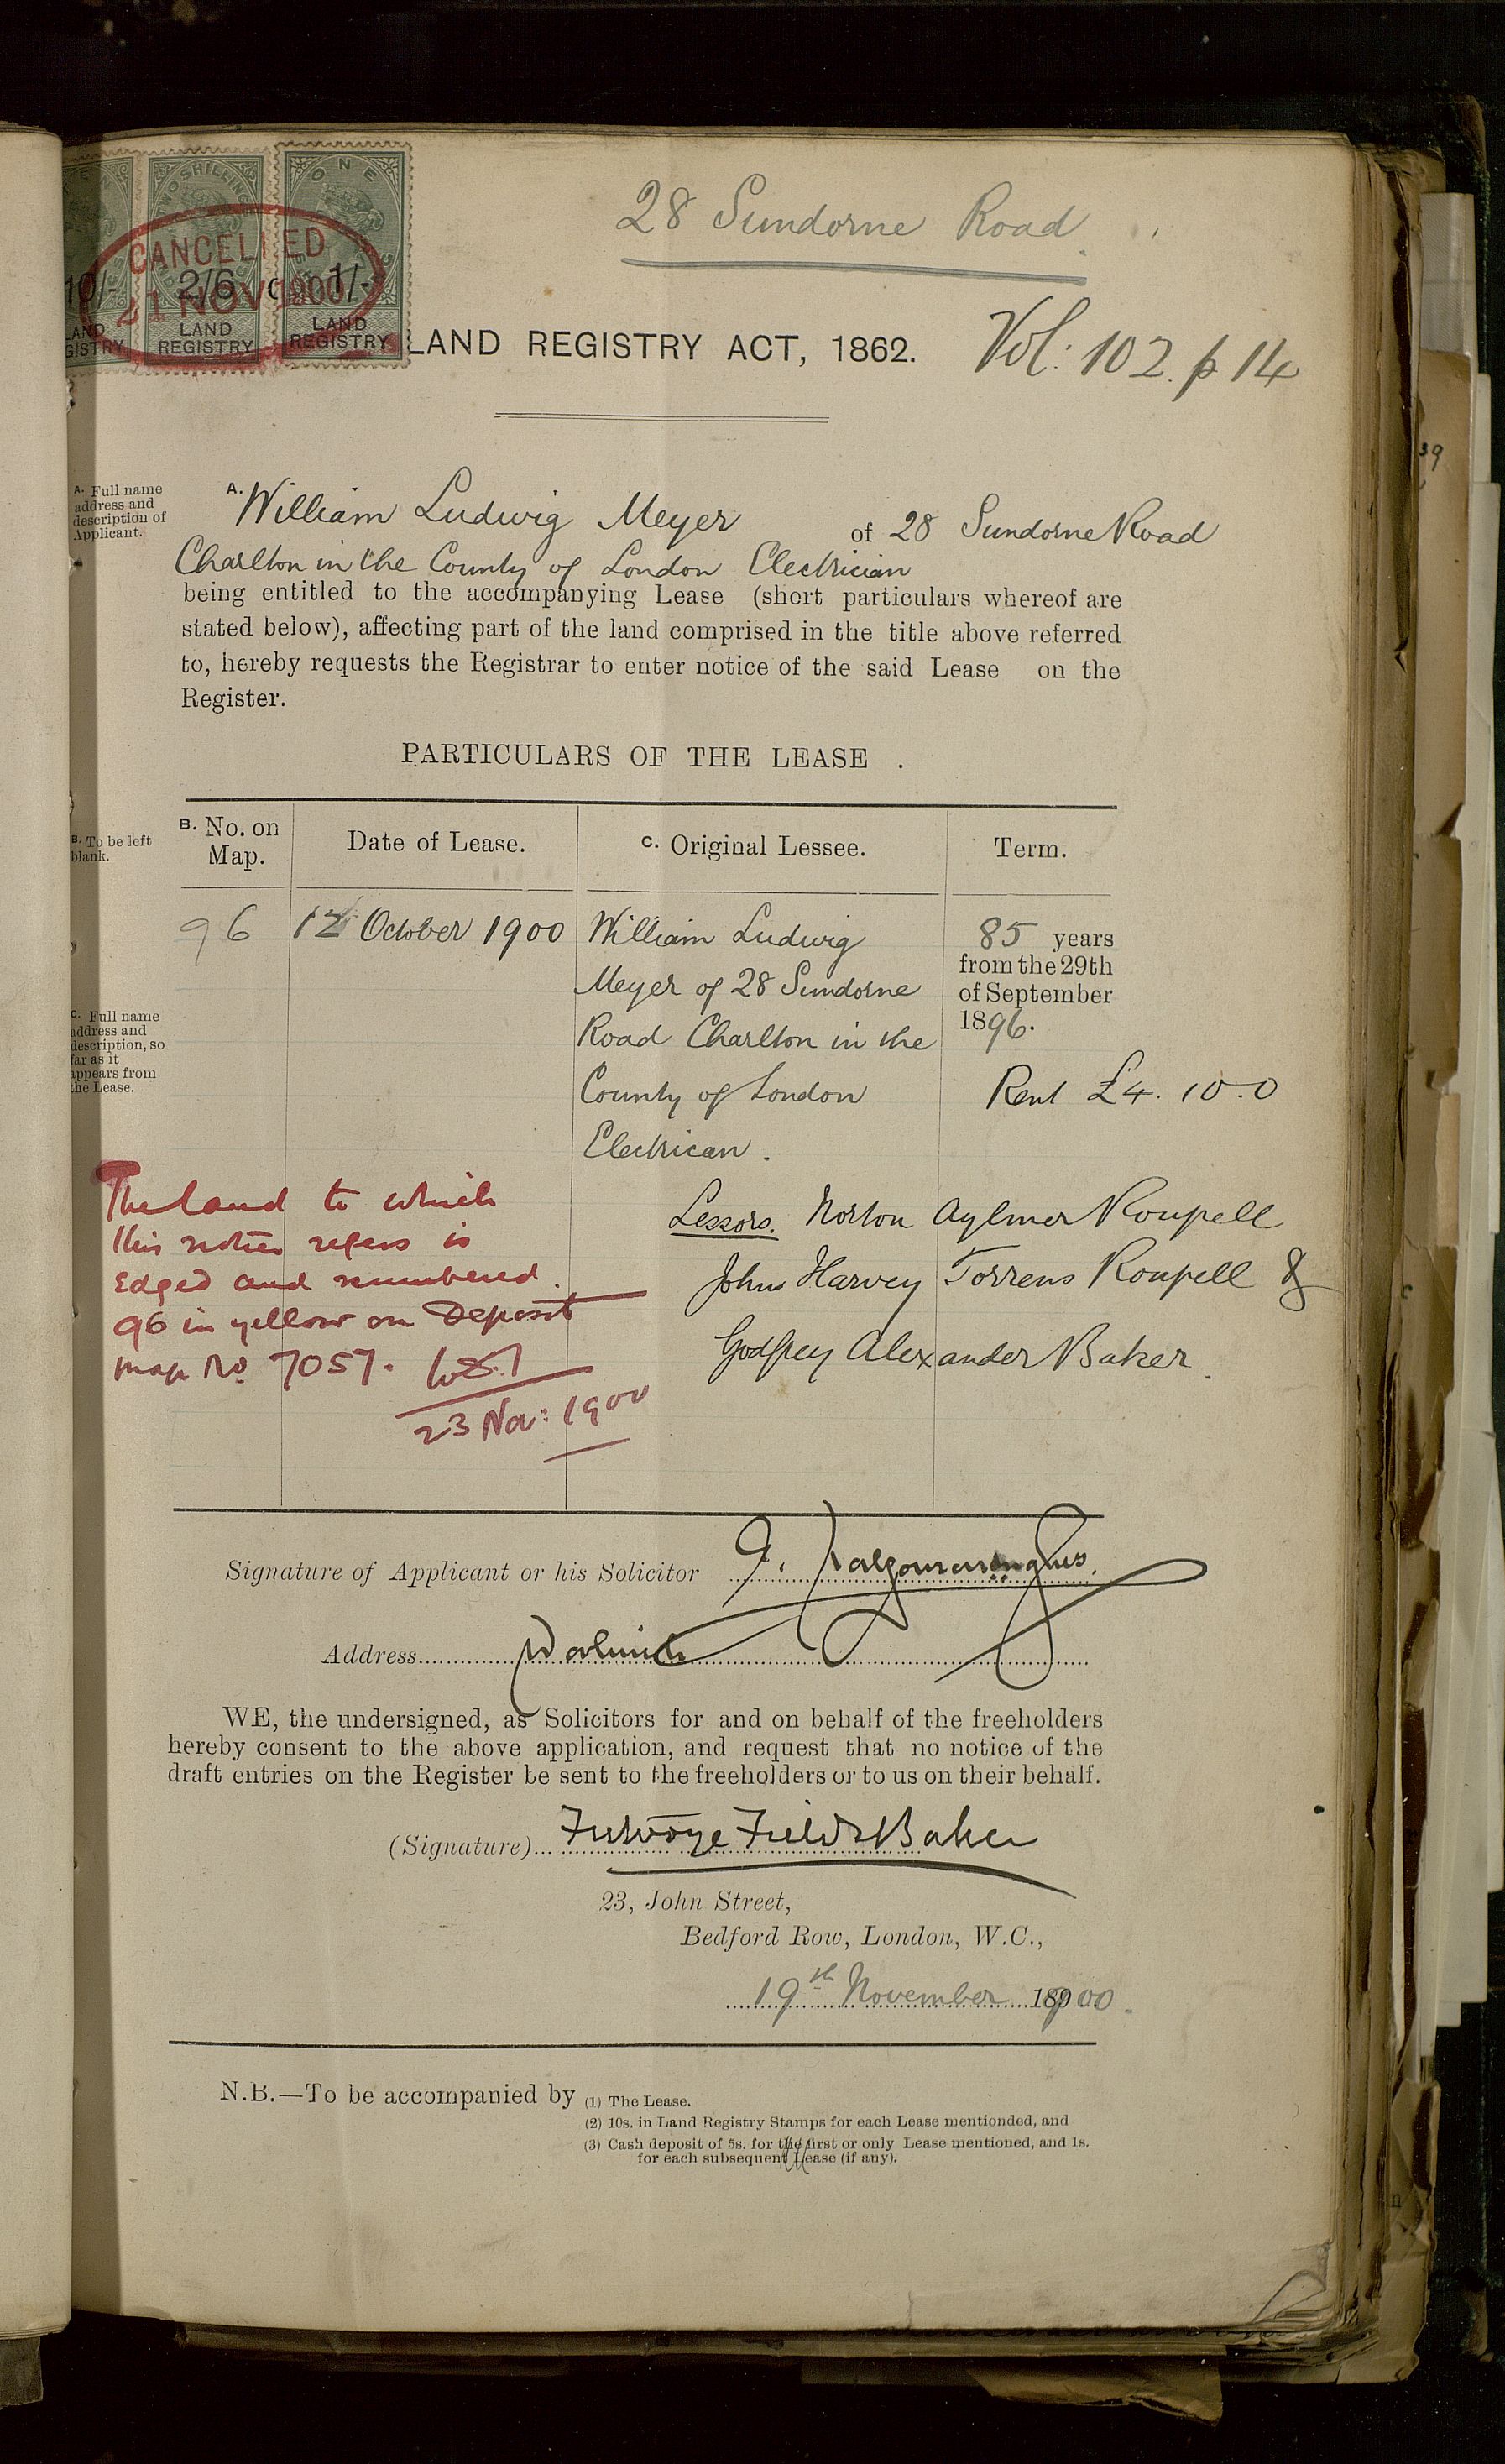 28 Sundorne Road
TWO SHILLING
ONE
CANCELLED
10/- 2/6 1/-
21 NOV 1900
LAND REGISTRY
LAND REGISTRY
LAND REGISTRY
LAND REGISTRY ACT, 1862.
Vol: 102. p 14
A. Full name
address and
description of
Applicant.
A. William Ludwig Meyer of 28 Sundorne Road
Charlton in the County of London Electrician
being entitled to the accompanying Lease (short particulars whereof are
stated below), affecting part of the land comprised in the title above referred
to, hereby requests the Registrar to enter notice of the said Lease on the
Register.
PARTICULARS OF THE LEASE .
B. To be left
blank.
B. No. on
Map.
Date of Lease.
C. Original Lessee.
Term.
96
12 October 1900
William Ludwig
Meyer of 28 Sundorne
Road Charlton in the
County of London
Electrican.
85 years
from the 29th
of September
1896.
Rent £4. 10. 0
C. Full name
address and
description, so
far as it
appears from
the Lease.
Lessors. Norton Aylmer Roupell
John Harvey Torrens Roupell &
Godfrey Alexander Baker.
The land to which
this notice refers is
Edged and numbered
96 in yellow on Deposit
map No. 7057.
23 Nov: 1900
Signature of Applicant or his Solicitor
Address Woolwich
WE, the undersigned, as Solicitors for and on behalf of the freeholders
hereby consent to the above application, and request that no notice of the
draft entries on the Register be sent to the freeholders or to us on their behalf.
(Signature) Fulvoye Field & Baker
23, John Street,
Bedford Row, London, W.C.,
19th November 1900.
N.B.—To be accompanied by (1) The Lease.
(2) 10s. in Land Registry Stamps for each Lease mentionded, and
(3) Cash deposit of 5s. for the first or only Lease mentioned, and 1s.
for each subsequent Lease (if any).
39